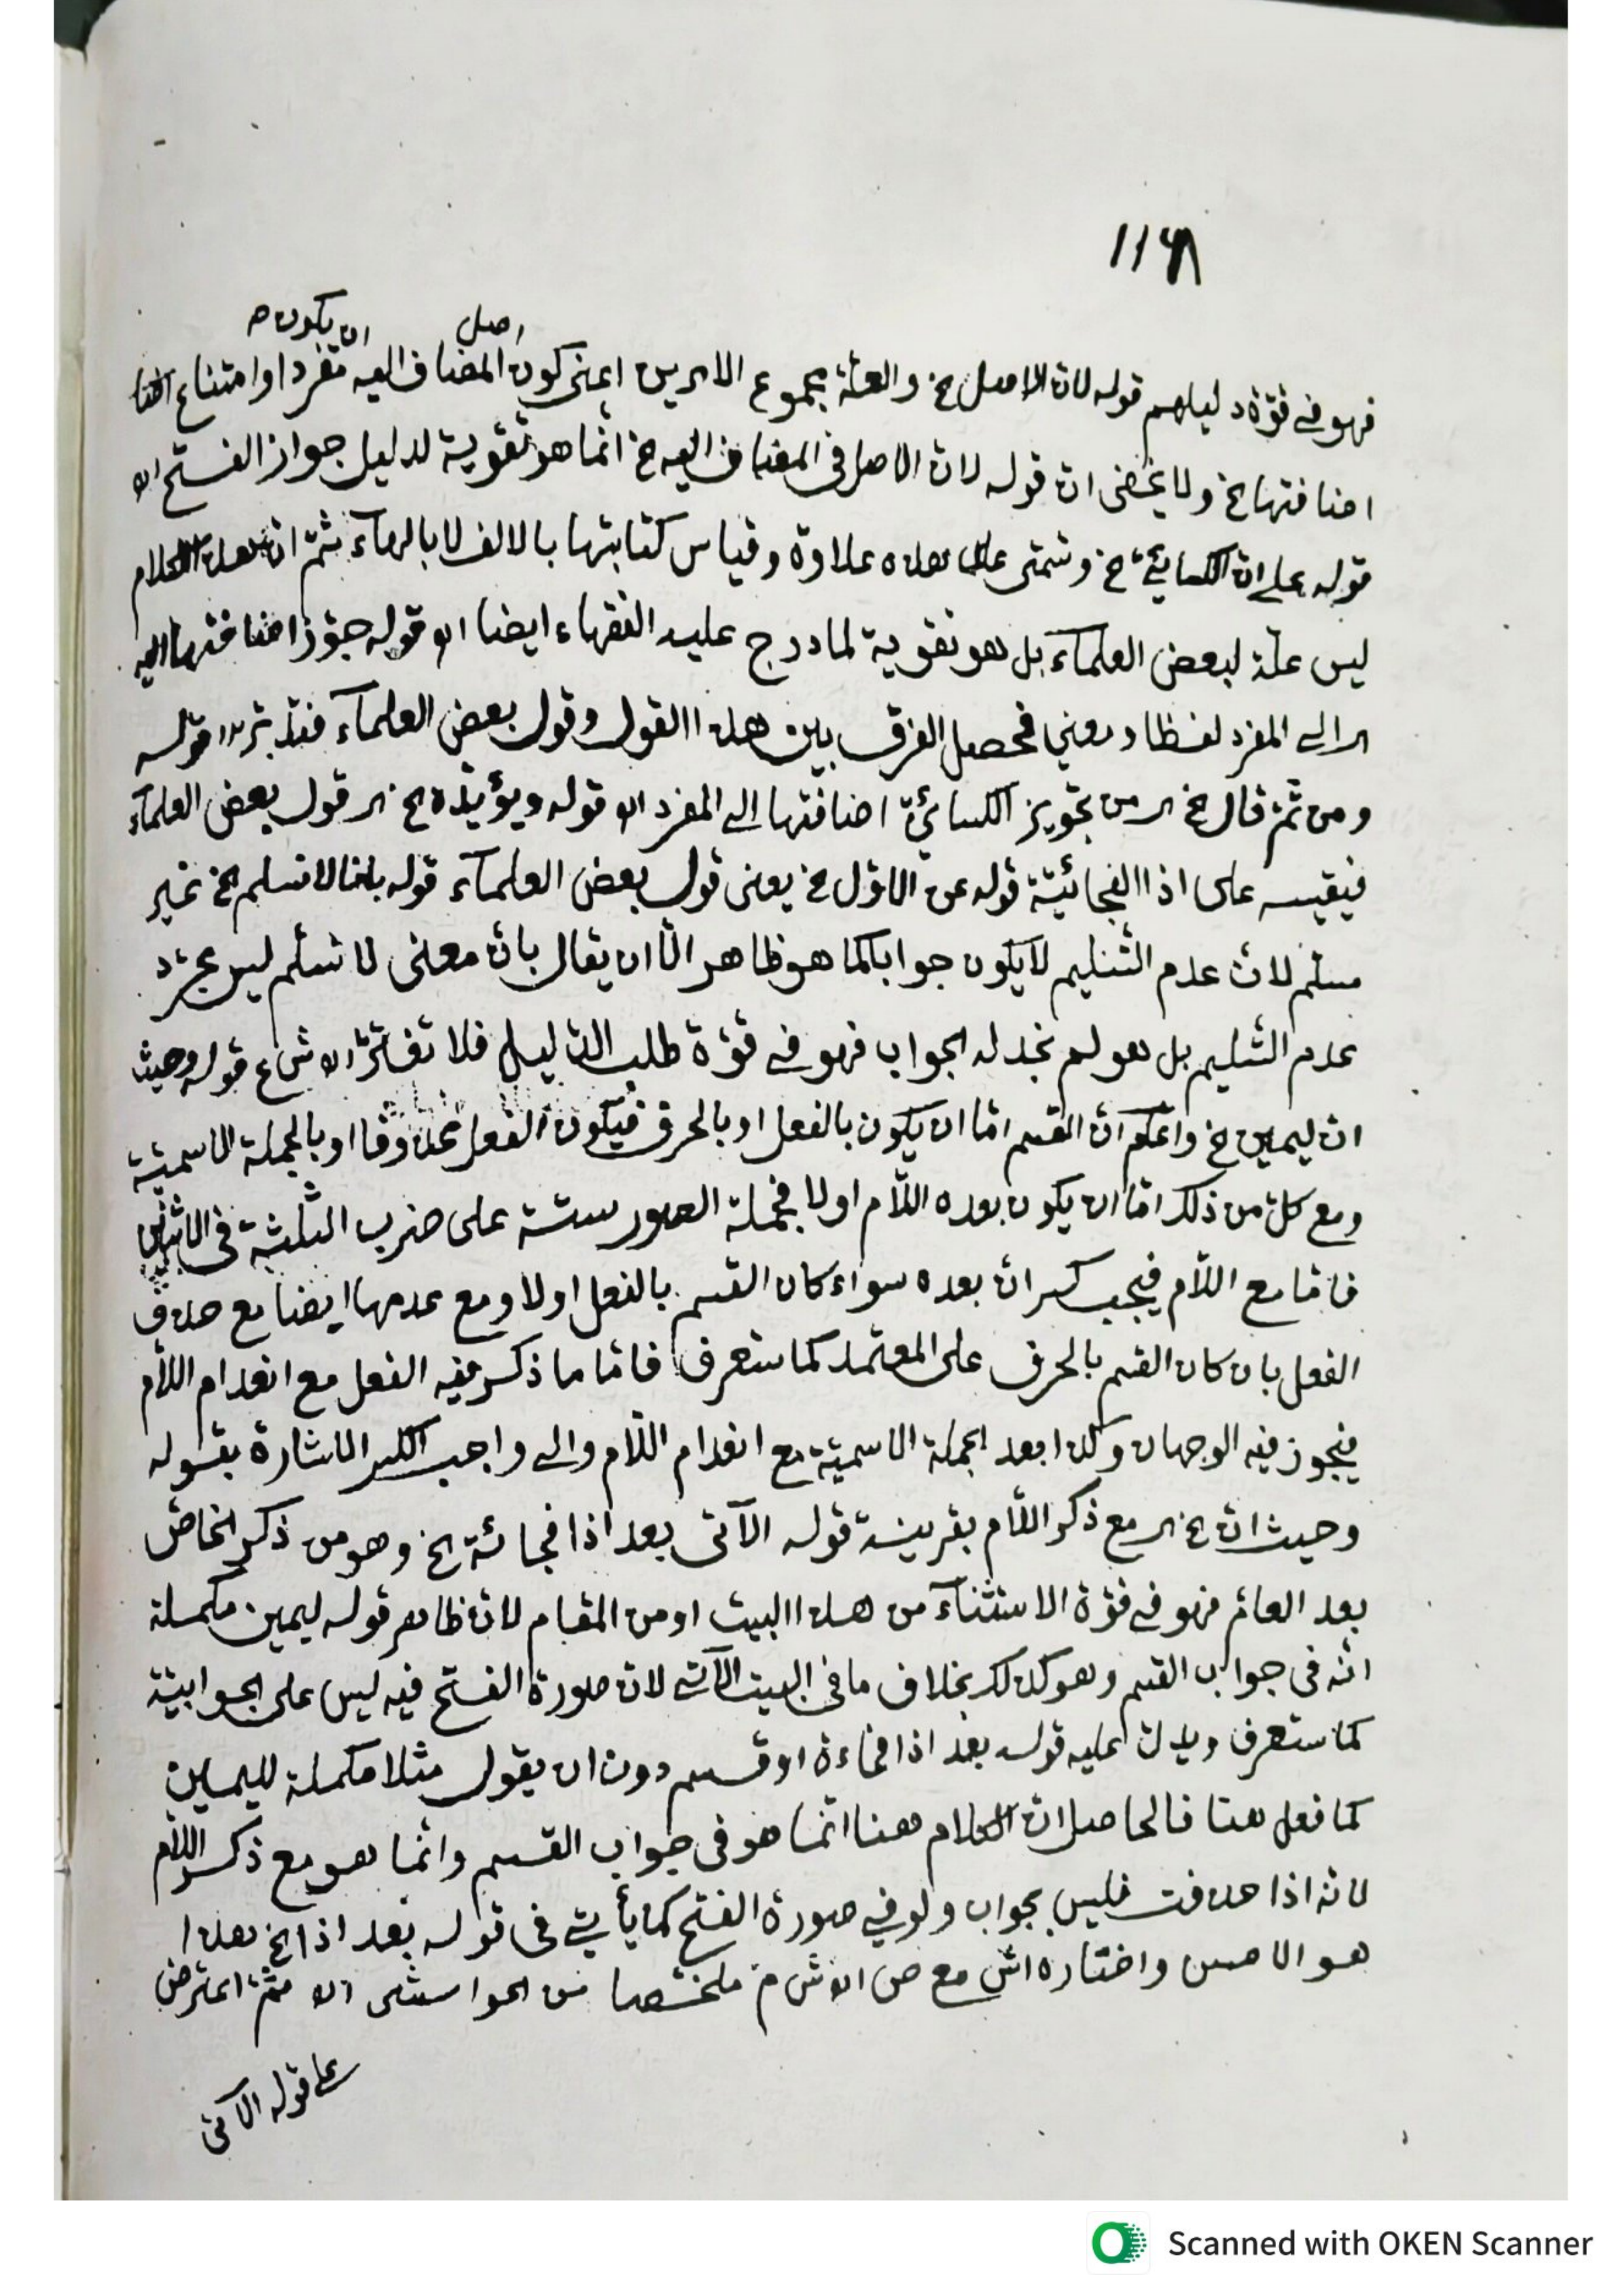 ١١٦٨
اصل ان يكون م
فهو فى قوّة دليلهم قوله لان الاصل الخ والعلّة مجموع الامرين اعنى كون المضاف اليه مفردا وامتناع
اضافتها الخ ولا يخفى ان قوله لان الاصل فى المضاف اليه الخ انّما هو تقوية لدليل جواز الفتح اه
قوله على ان الكسائىّ الخ وتسمّى على هذه علاوة وقياس كتابتها بالالف لا بالهآء ثمّ ان هذا الكلام
ليس علّة لبعض العلمآء بل هو تقوية لما درج عليه الفقهاء ايضا اه قوله جوّز اضافتها اليه
اى الى المفرد لفظا ومعنى فحصل الفرق بين هذا القول وقول بعض العلمآء فتدبّر اه قوله
ومن ثمّ قال الخ اى من تجويز الكسائىّ اضافتها الى المفرد اه قوله ويؤيّده الخ اى قول بعض العلمآء
فيقيسه على اذا الفجائيّة قوله عن الاوّل الخ يعنى قول بعض العلمآء قوله بانا لا نسلم الخ غير
مسلّم لانّ عدم التّسليم لا يكون جوابا كما هو ظاهر الّا ان يقال بانّ معنى لا نسلّم ليس مجرّد
عدم التّسليم بل هو لم نجد له الجواب فهو فى قوّة طلب الدّليل فلا تغترّ اه ش ع قوله وحيث
ان ليمين الخ واعلم انّ القسم امّا ان يكون بالفعل او بالحرف فيكون الفعل محذوفا او بالجملة الاسميّة
ومع كلّ من ذلك امّا ان يكون بعده اللّام اولا فجملة الصور ستّة على ضرب الثلثة فى الاثنين
فامّا مع اللّام فيجب كسر انّ بعده سواء كان القسم بالفعل اولا ومع عدمها ايضا مع حذف
الفعل بان كان القسم بالحرف على المعتمد كما ستعرف فامّا ما ذكر فيه الفعل مع انعدام اللّام
فيجوز فيه الوجهان وكذا بعد الجملة الاسميّة مع انعدام اللّام والى واجب الكسر الاشارة بقوله
وحيث انّ الخ اى مع ذكر اللّام بقرينة قوله الآتى بعد اذا فجائة الخ وهو من ذكر الخاصّ
بعد العامّ فهو فى قوّة الاستثنآء من هذا البيت او من المقام لان ظاهر قوله ليمين مكملة
انّه فى جواب القسم وهو كذلك بخلاف ما فى البيت الآتى لان صورة الفتح فيه ليس على الجوابيّة
كما ستعرف ويدلّ عليه قوله بعد اذا فجاءة او قسم دون ان يقول مثلا مكملة لليمين
كما فعل هنا فالحاصل انّ الكلام ههنا انّما هو فى جواب القسم وانّما هو مع ذكر اللّام
لانه اذا حذفت فليس بجواب ولو فى صورة الفتح كما يأتى فى قوله بعد اذا الخ هذا
هو الاحسن واختاره اش مع ص اه ش م ملخّصا من الحواشى اه ثمّ اعترض
على قوله الآتى
Scanned with OKEN Scanner